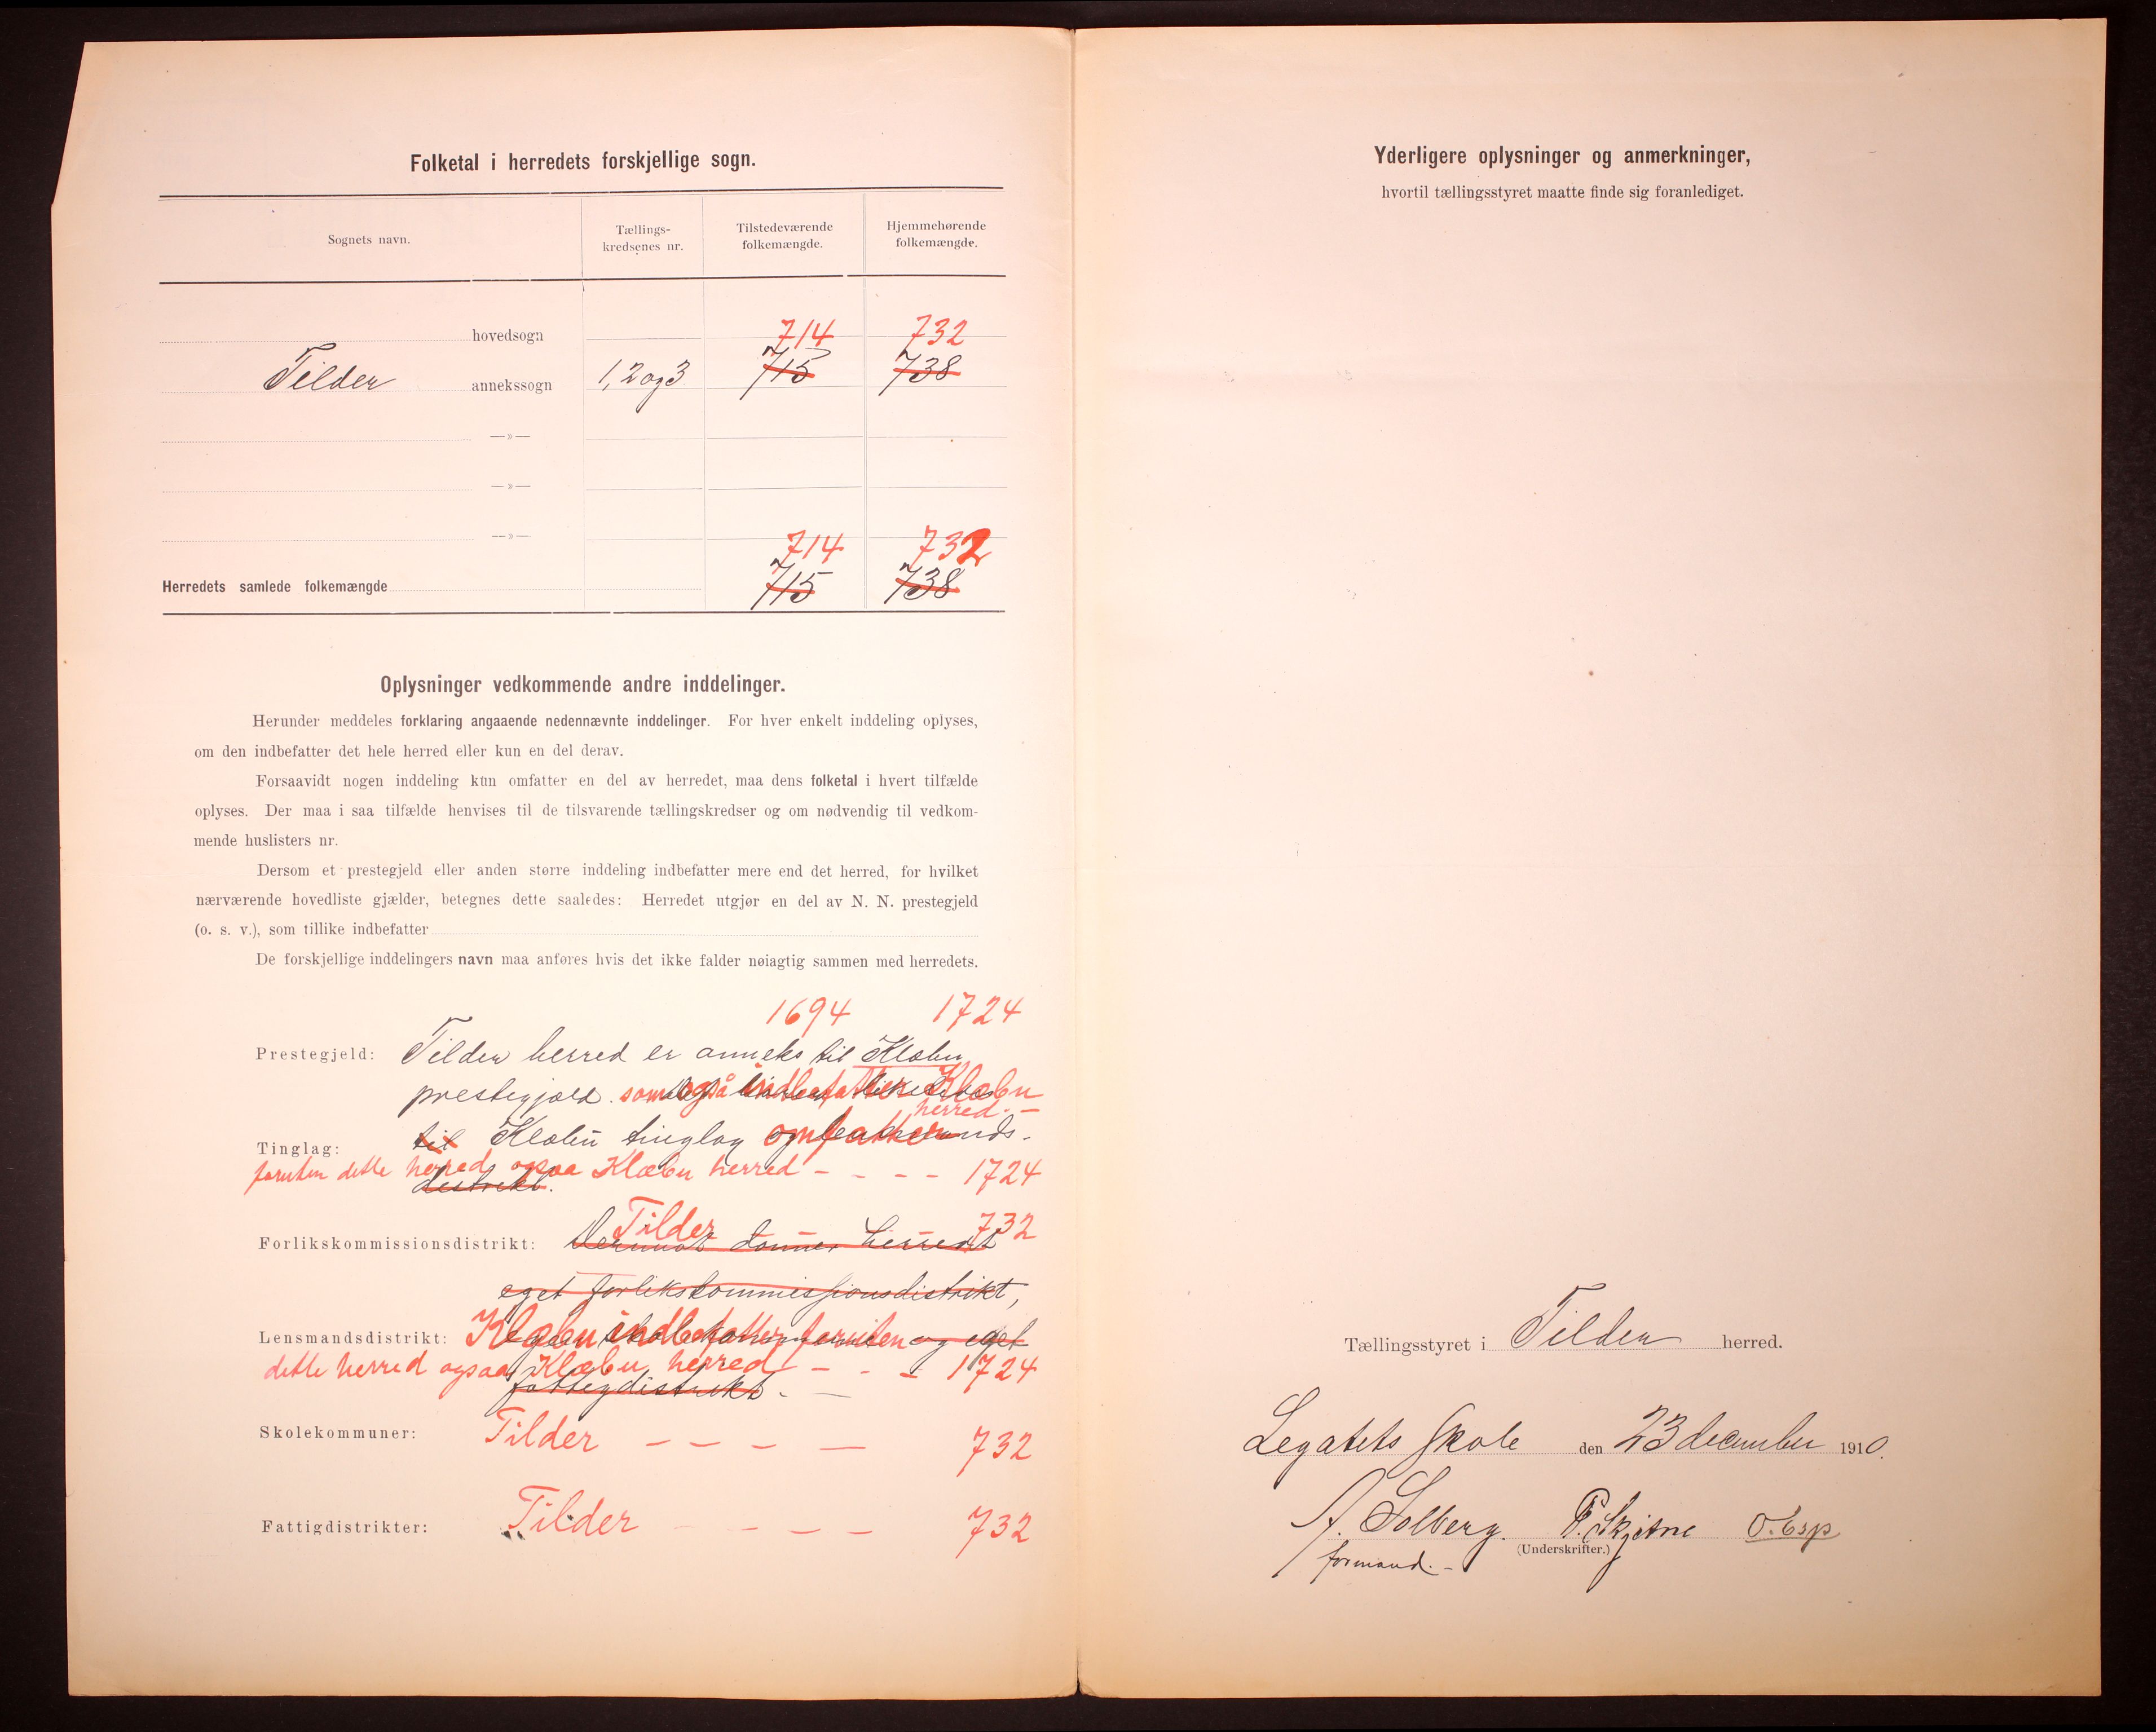 Folketal i herredets forskjellige sogn.
Sognets navn.
Tællings-
kredsenes nr.
Tilstedeværende
folkemængde.
Hjemmehørende
folkemængde.
hovedsogn
714 732
Tilder annekssogn 1, 2 og 3 715 738
—»—
—»—
—»—
714 732
Herredets samlede folkemængde 715 738
Oplysninger vedkommende andre inddelinger.
Herunder meddeles forklaring angaaende nedennævnte inddelinger. For hver enkelt inddeling oplyses,
om den indbefatter det hele herred eller kun en del derav.
Forsaavidt nogen inddeling kun omfatter en del av herredet, maa dens folketal i hvert tilfælde
oplyses. Der maa i saa tilfælde henvises til de tilsvarende tællingskredser og om nødvendig til vedkom-
mende huslisters nr.
Dersom et prestegjeld eller anden større inddeling indbefatter mere end det herred, for hvilket
nærværende hovedliste gjælder, betegnes dette saaledes: Herredet utgjør en del av N. N. prestegjeld
(o. s. v.), som tillike indbefatter
De forskjellige inddelingers navn maa anføres hvis det ikke falder nøiagtig sammen med herredets.
1694 1724
Prestegjeld: Tilder herred er anneks til Klæbu
prestegjæld. som også indbefatter Klæbu
herred. —
Tinglag: til Klæbu tinglag omfatter
foruten dette herred ogsaa Klæbu herred - - - - 1724
distrikt.
Tilder 732
Forlikskommissionsdistrikt: danner herredet
eget forlikskommissjonsdistrikt,
Lensmandsdistrikt: Klæbu indbefatter foruten og eget
dette herred ogsaa Klæbu herred - - - 1724
fattigdistrikt.
Skolekommuner: Tilder - - - - 732
Fattigdistrikter: Tilder - - - - 732
Yderligere oplysninger og anmerkninger,
hvortil tællingsstyret maatte finde sig foranlediget.
Tællingsstyret i Tilder herred.
Legatets Skole den 23 december 1910.
A. Solberg. P. Skjetne O. Esp
formand. -
(Underskrifter.)